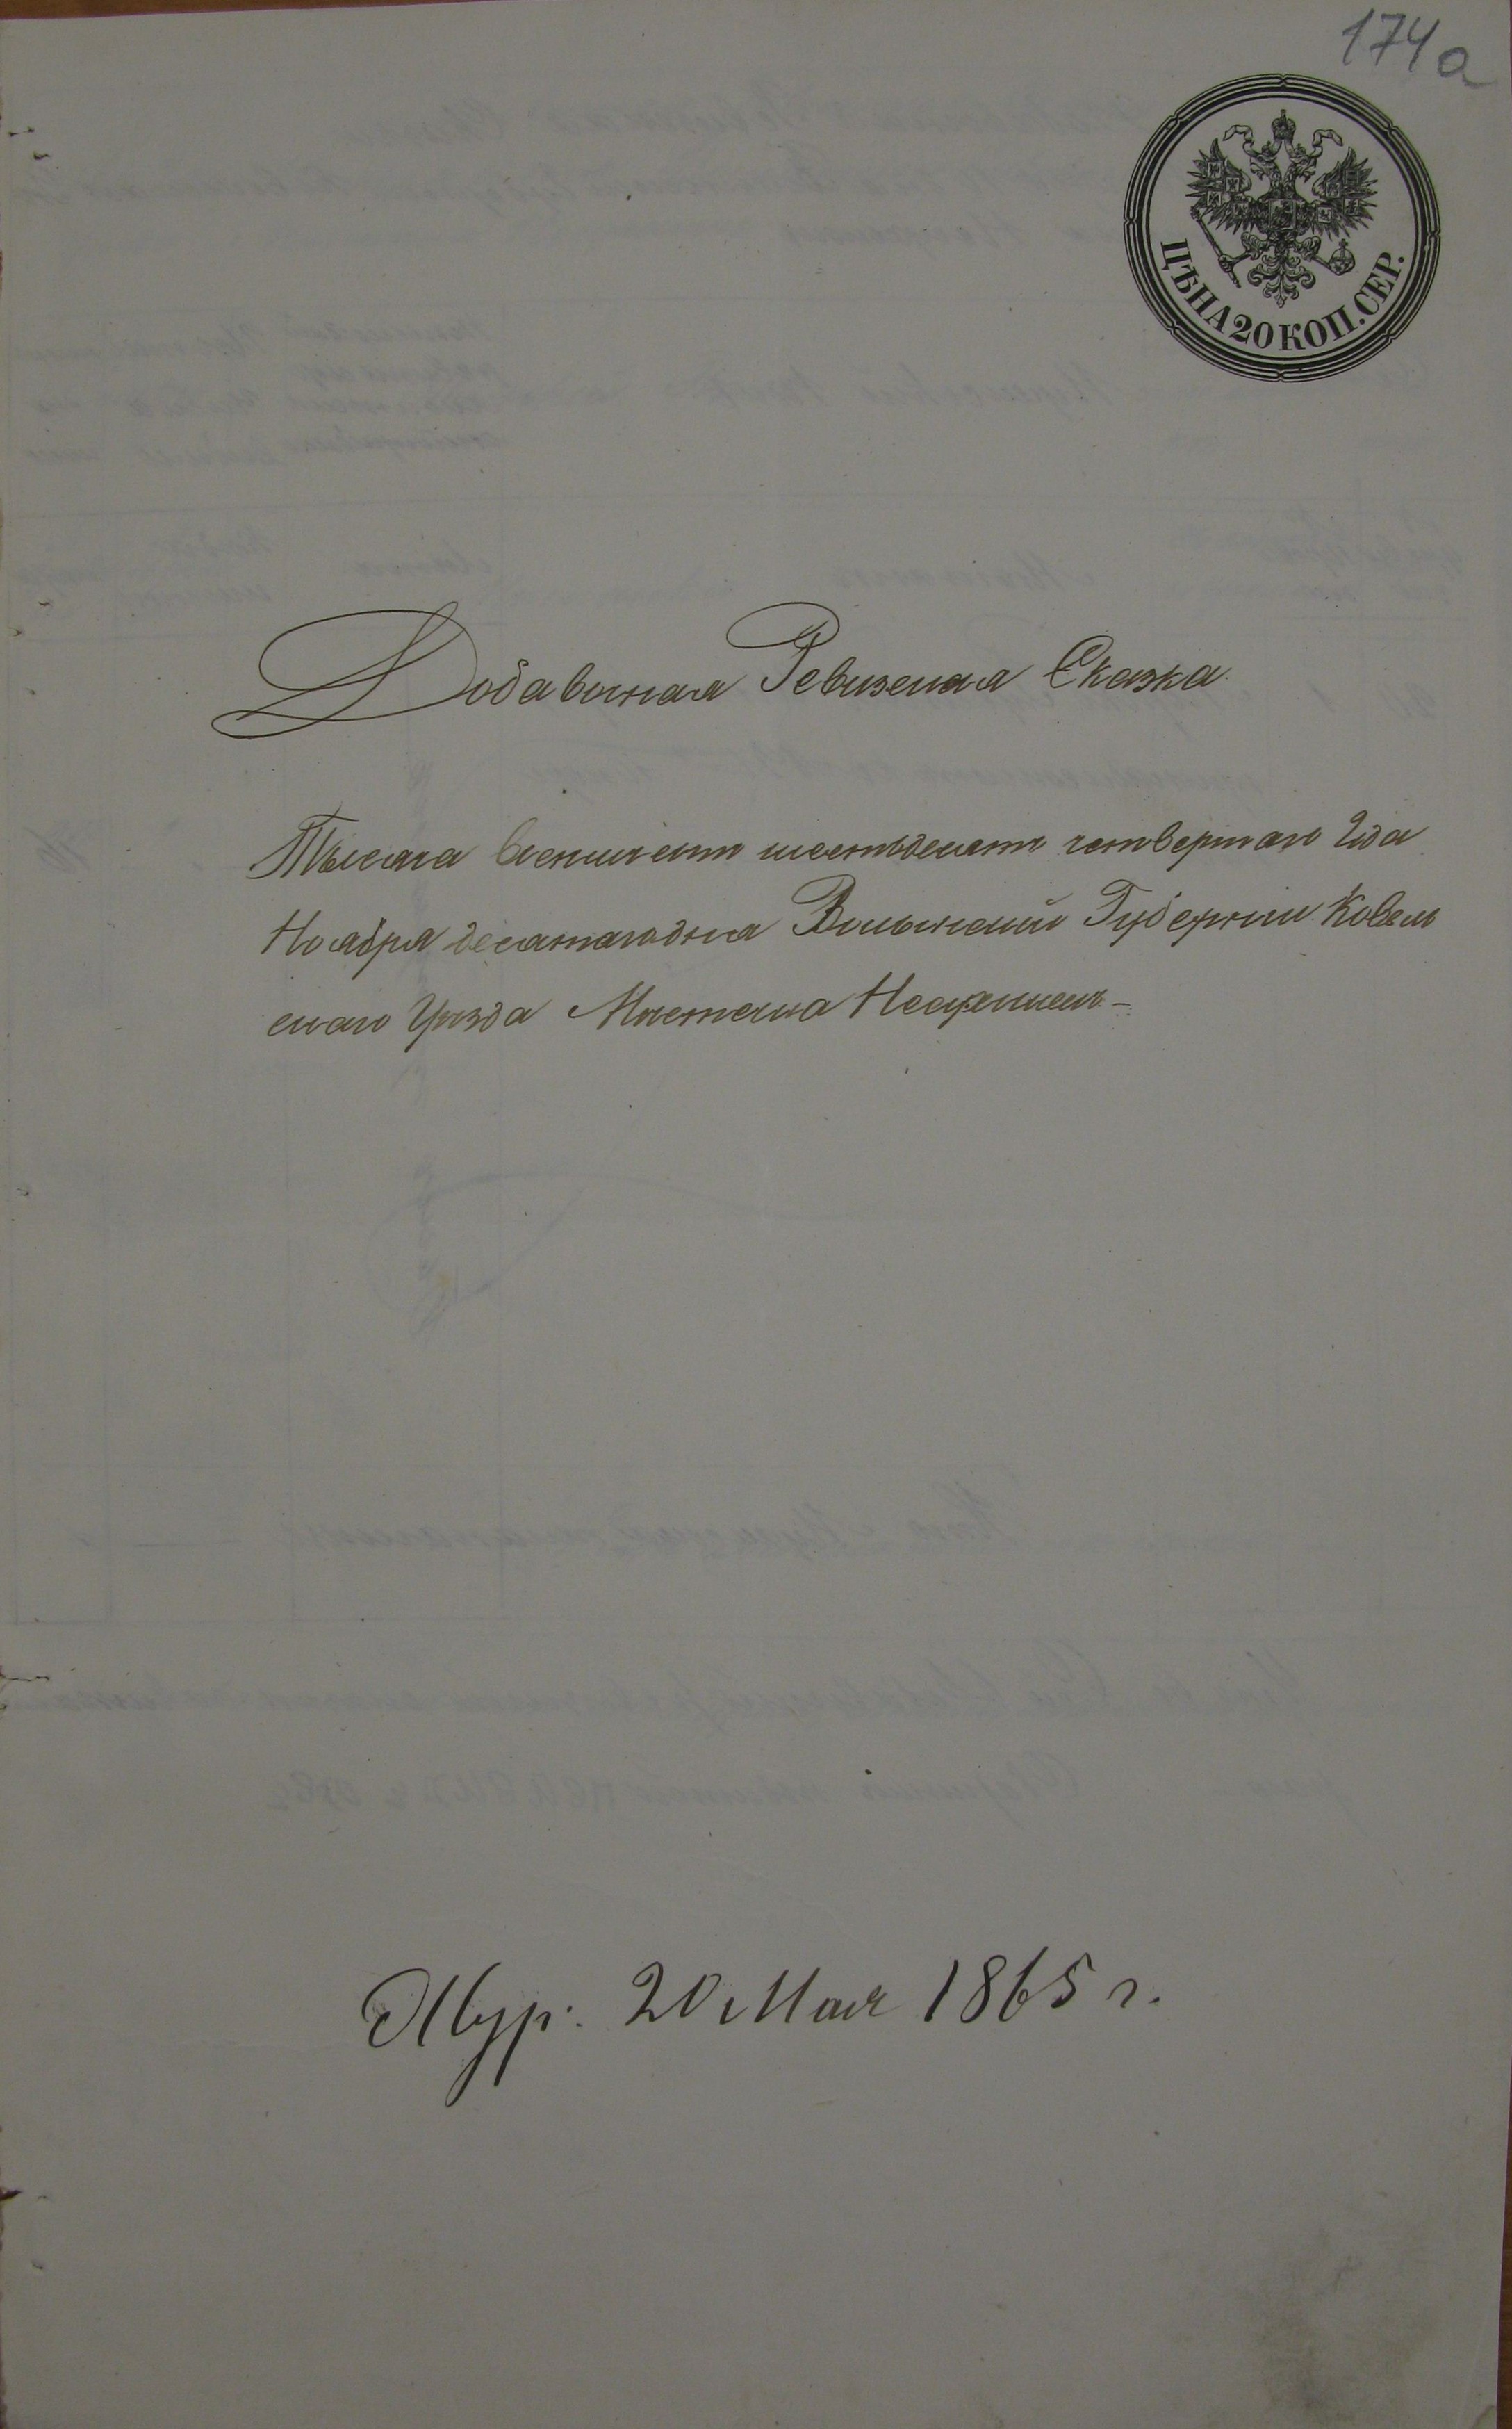 174а
ЦѢНА 20 КОП. СЕР.
Добавочная Ревизская Сказка
Тысяча восемьсотъ шестьдесятъ четвертаго Года
Ноября десятагодня Волынской Губерніи Ковель
скаго Уѣзда Мѣстечка Несухоежъ
Жур. 20 Мая 1865 г.